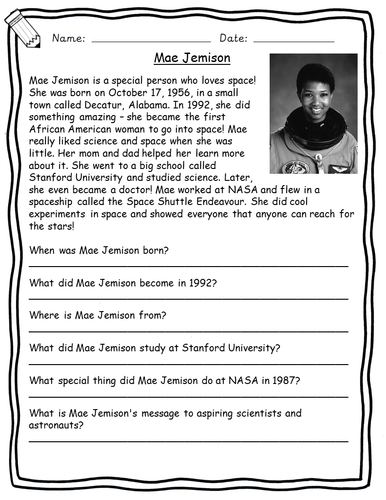 Name: ____________ Date: ____________
Mae Jemison
Mae Jemison is a special person who loves space!
She was born on October 17, 1956, in a small
town called Decatur, Alabama. In 1992, she did
something amazing – she became the first
African American woman to go into space! Mae
really liked science and space when she was
little. Her mom and dad helped her learn more
about it. She went to a big school called
Stanford University and studied science. Later,
she even became a doctor! Mae worked at NASA and flew in a
spaceship called the Space Shuttle Endeavour. She did cool
experiments in space and showed everyone that anyone can reach for
the stars!
When was Mae Jemison born?
What did Mae Jemison become in 1992?
Where is Mae Jemison from?
What did Mae Jemison study at Stanford University?
What special thing did Mae Jemison do at NASA in 1987?
What is Mae Jemison's message to aspiring scientists and
astronauts?